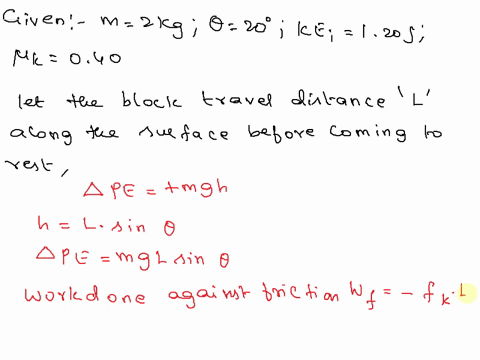 Given:- m = 2kg ; θ = 20° ; KEi = 1.20J ;
μk = 0.40
let the block travel distance 'L'
along the surface before coming to
rest,
△ PE = +mgh
h = L. sin θ
△ PE = mg L sin θ
workdone against friction Wf = - fk . L